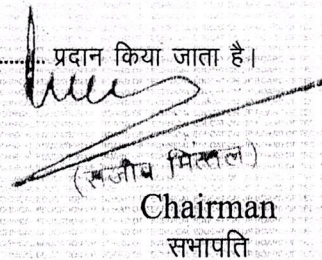 ........ प्रदान किया जाता है।
(संजीव मित्तल)
Chairman
सभापति